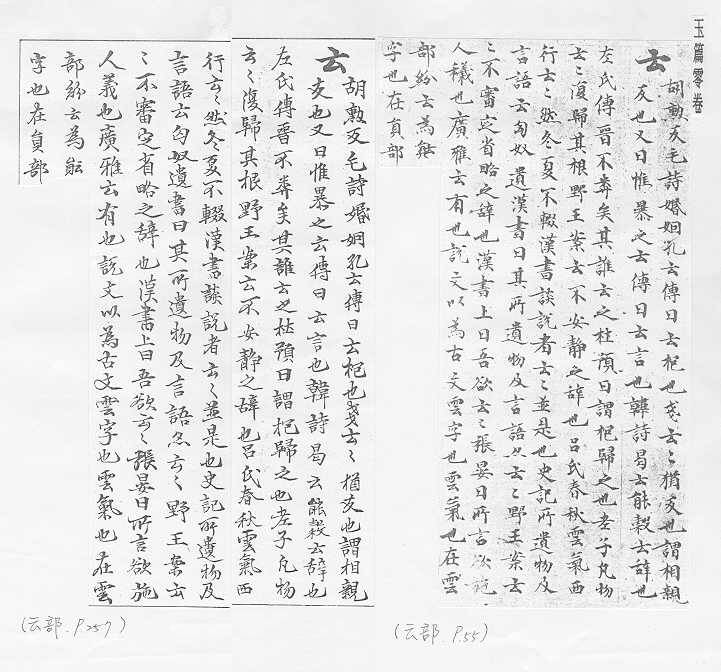 玉篇零卷
云
胡勲反毛詩婚姻孔云傳曰云杞也戔云〻猶友也謂相親
友也又曰惟暴之云傳曰云言也韓詩曷云能穀云辞也
左氏傳晋不鄰矣其誰云之杜預曰謂杞歸之也老子凡物
云〻復歸其根野王案云不安静之辞也吕氏春秋雲氣西
行云〻然冬夏不輟漢書談説者云〻並是也史記所遺物及
言語云匈奴遺漢書曰其所遺物及言語云〻野王案云
〻不審定省略之辞也漢書上曰吾欲云〻張晏曰所言欲施
人義也廣雅云有也説文以為古文雲字也雲氣也在雲
部紛云為䰟
字也在員部
(云部 P.55)
云
胡勲反毛詩婚姻孔云傳曰云杞也戔云〻猶友也謂相親
友也又曰惟暴之云傳曰云言也韓詩曷云能穀云辞也
左氏傳晋不鄰矣其誰云之杜預曰謂杞歸之也老子凡物
云〻復歸其根野王案云不安静之辞也吕氏春秋雲氣西
行云〻然冬夏不輟漢書談説者云〻並是也史記所遺物及
言語云匈奴遺書曰其所遺物及言語云〻野王案云
〻不審定省略之辞也漢書上曰吾欲云〻張晏曰所言欲施
人義也廣雅云有也説文以為古文雲字也雲氣也在雲
部紛云為
字也在員部
(云部 P.257)